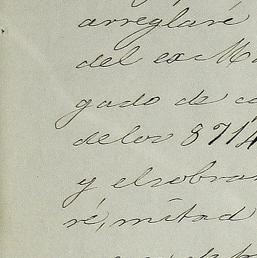 arreglaré
del ex M
gado de c
delos 8714
y elsobra
ré, mitad